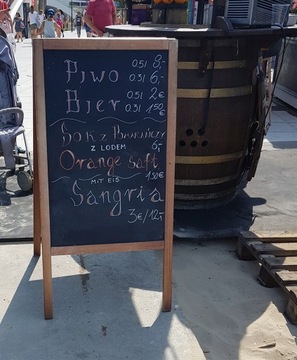 Piwo 0.5l 8,-
0.3l 6,-
Bier 0.5l 2€
0.3l 1,50€
Sok z
z LODEM 6,-
Orange saft
MIT EIS 1,50€
Sangria
3€/12,-